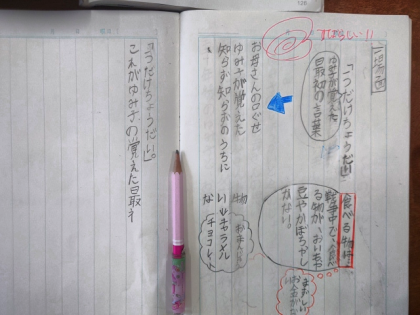 すばらしい!!
「一つだけちょうだい」
ゆみ子が覚えた
最初の言葉
食べる物は、
戦争中で、
る物が、おいもや
豆やかぼちゃし
かない。
お母さんの口ぐせ
ゆみ子が覚えた
知らず知らずのうちに
物
おまんじゅう
いキャラメル
チョコレート
な
「一つだけちょうだい。」
これがゆみ子の覚えた最